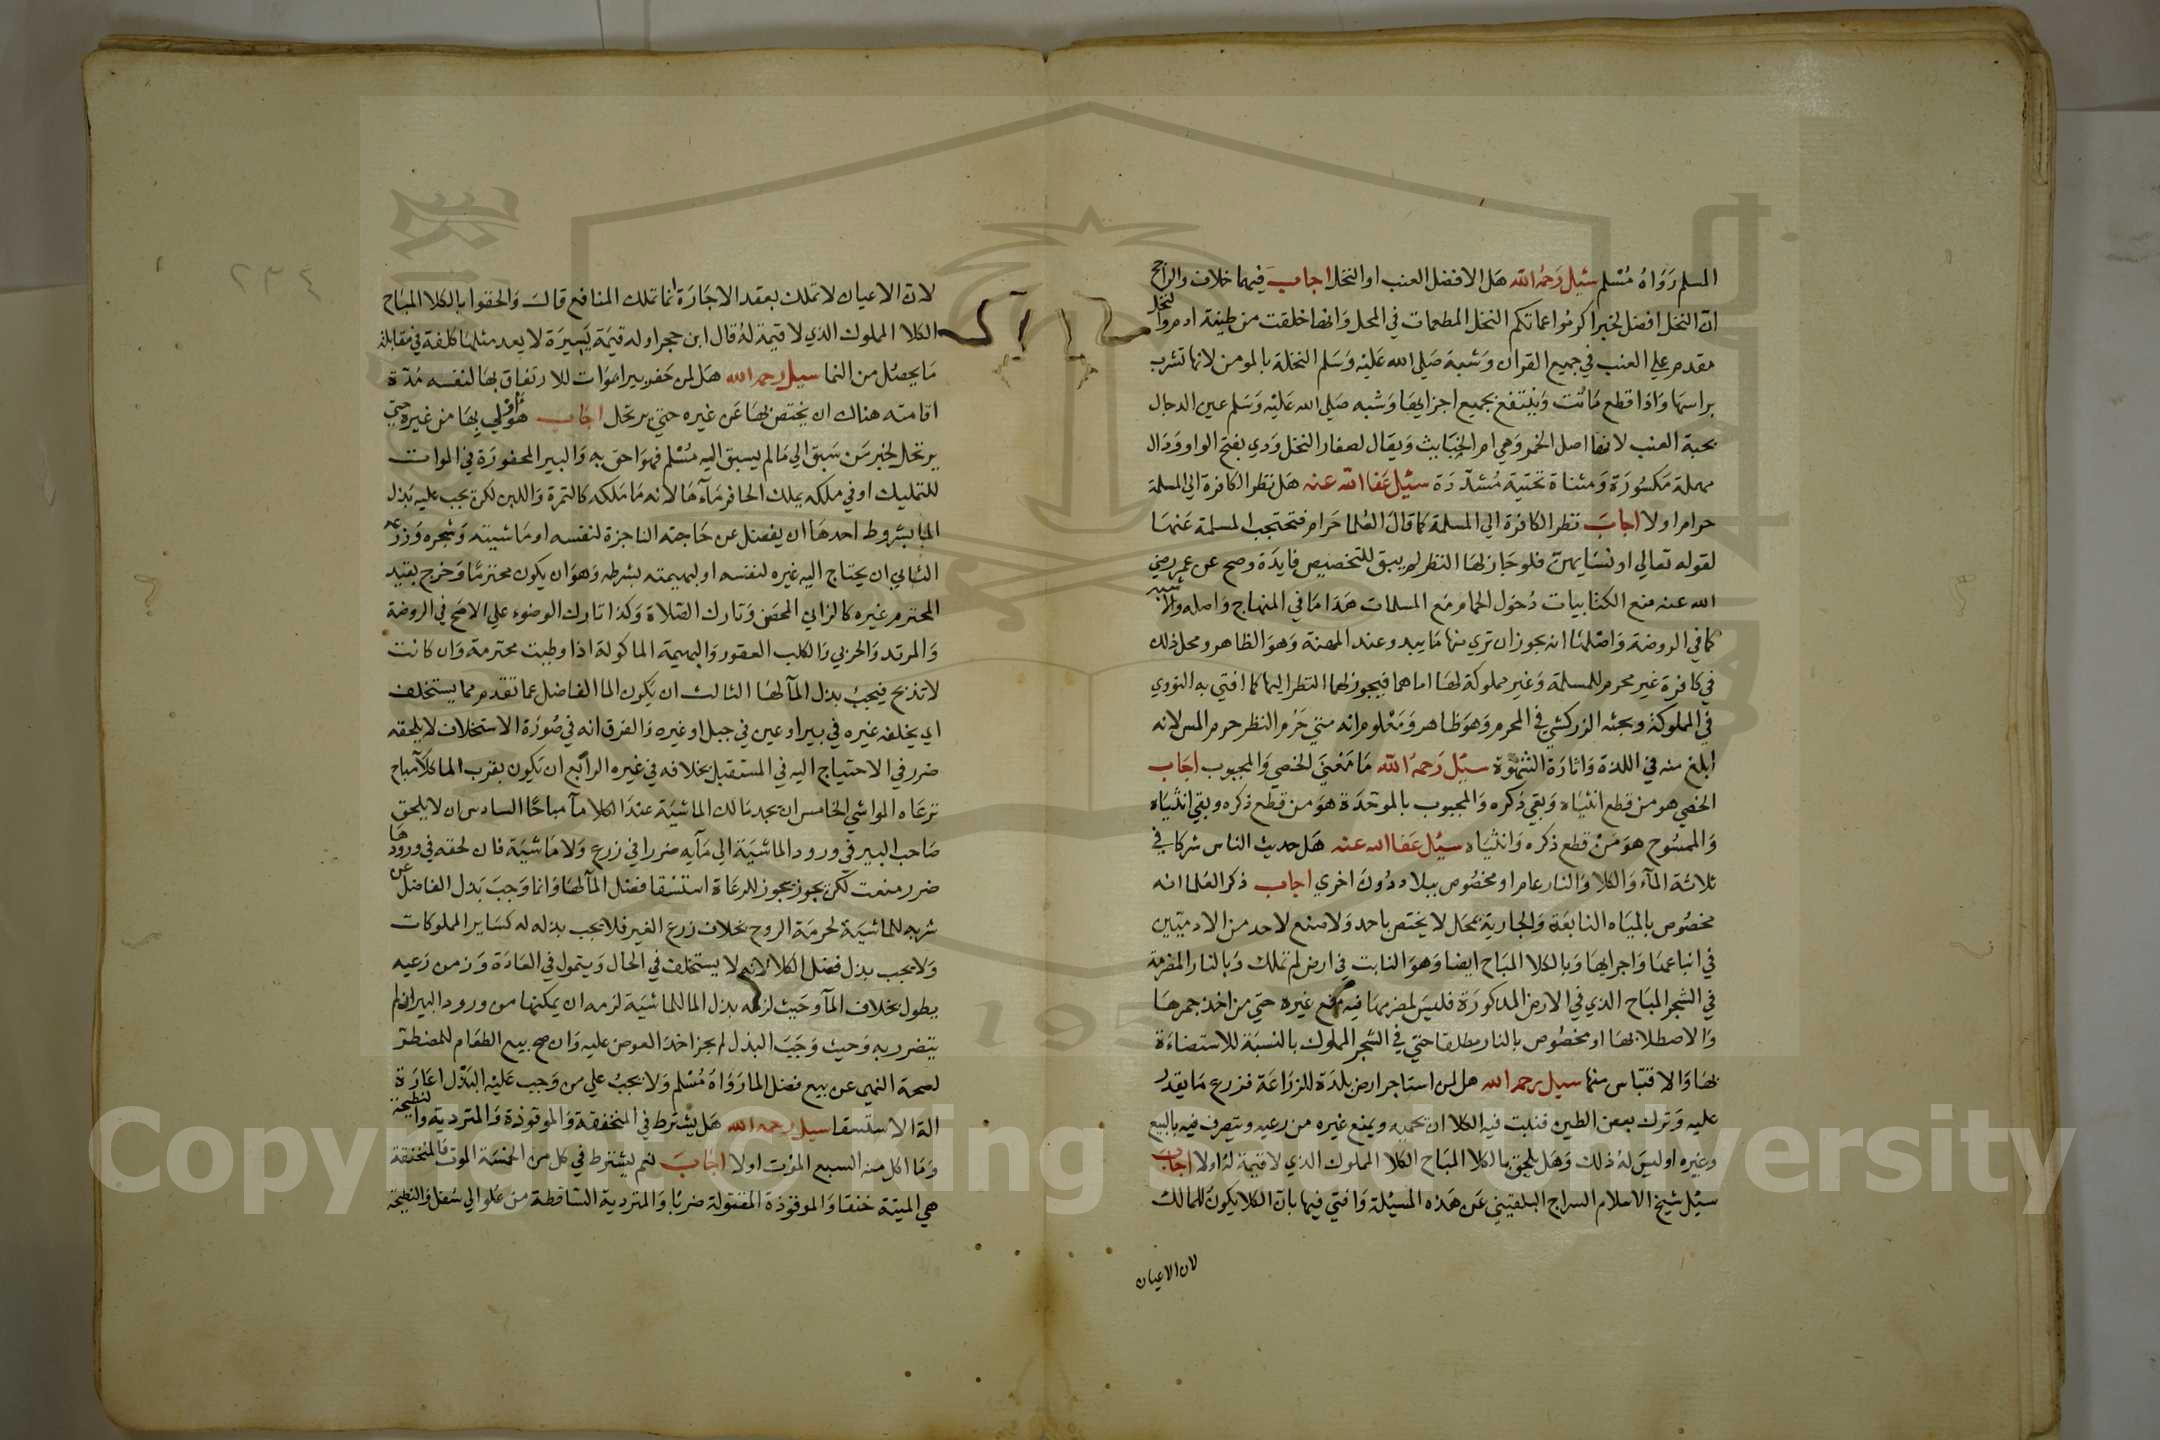 المسلم رواه مسلم سئل رحمه الله هل الافضل العنب او النخل اجاب فيهما خلاف والراجح
ان النخل افضل لخبر اكرموا عماتكم النخل المطعمات في المحل وانها خلقت من طينة ادم والنخل
مقدم علي العنب في جميع القران وشبه صلي الله عليه وسلم النخلة بالمومن لانها تشرب
براسها واذا قطع ماتت وينتفع بجميع اجزايها وشبه صلي الله عليه وسلم عين الدجال
بحبة العنب لانها اصل الخمر وهي ام الخبايث ويقال لصغار النخل ودي بفتح الواو ودال
مهملة مكسورة ومثناة تحتية مشددة سئل عفا الله عنه هل نظر الكافرة الي المسلمة
حرام او لا اجاب نظر الكافرة الي المسلمة كما قال العلما حرام فتحتجب المسلمة عنها
لقوله تعالي او نسايهن فلو جاز لها النظر لم يبق للتخصيص فايدة وصح عن عمر رضي
الله عنه منع الكتابيات دخول الحمام مع المسلمات هذا ما في المنهاج واصله والاشبه
كما في الروضة واصلها انه يجوز ان تري منها ما يبدو عند المهنة وهو الظاهر ومحل ذلك
في كافرة غير محرم للمسلمة وغير مملوكة لها اما هما فيجوز لهما النظر اليها كما افتي به النووي
في المملوكة وبحثه الزركشي في المحرم وهو ظاهر ومعلوم انه متي حرم النظر حرم المس لانه
ابلغ منه في اللذة واثارة الشهوة سئل رحمه الله ما معني الخصي والمجبوب اجاب
الخصي هو من قطع انثياه وبقي ذكره والمجبوب بالموحدة هو من قطع ذكره وبقي انثياه
والممسوح هو من قطع ذكره وانثياه سئل عفا الله عنه هل حديث الناس شركا في
ثلاثة الماء والكلا والنار عام او مخصوص ببلاد دون اخري اجاب ذكر العلما انه
مخصوص بالمياه النابعة والجارية بمحل لا يختص باحد ولا صنع لاحد من الادميين
في انباعها واجرايها وبالكلا المباح ايضا وهو النابت في ارض لم تملك وبالنار المضرمة
في الشجر المباح الذي في الارض المذكورة فليس لمضرمها فيه منع غيره حتي من اخذ جمرها
والاصطلا بها او مخصوص بالنار مطلقا حتي في الشجر المملوك بالنسبة للاستضاءة
بها والاقتباس منها سيل رحمه الله هل لمن استاجر ارض بلدة للزراعة فزرع ما يقدر
عليه وترك بعض الطين فنبت فيه الكلا ان يحميه ويمنع غيره من رعيه ويتصرف فيه بالبيع
وغيره او ليس له ذلك وهل يلحق بالكلا المباح الكلا المملوك الذي لا قيمة له او لا اجاب
سئل شيخ الاسلام السراج البلقيني عن هذه المسئلة وافتي فيها بان الكلا يكون للمالك
لان الاعيان
٢٣٤
لان الاعيان لا تملك بعقد الاجارة انما تملك المنافع قال والحقوا بالكلا المباح
الكلا المملوك الذي لا قيمة له قال ابن حجر او له قيمة يسيرة لا يعد مثلها كلفة في مقابلة
ما يحصل من النما سيل رحمه الله هل لمن حفر بيرا بموات للارتفاق بها لنفسه مدة
اقامته هناك ان يختص بها عن غيره حتي يرتحل اجاب هو اولي بها من غيره حتي
يرتحل لخبر من سبق الي ما لم يسبق اليه مسلم فهو احق به والبير المحفورة في الموات
للتمليك او في ملكه يملك الحافر ماءها لانه نما ملكه كالثمرة واللبن لكن يجب عليه بذل
الما بشروط احدها ان يفضل عن حاجته الناجزة لنفسه او ماشيته وشجره وزرعه
الثاني ان يحتاج اليه غيره لنفسه او لبهيمته بشرطه وهو ان يكون محترما وخرج بقيد
المحترم غيره كالزاني المحصن وتارك الصلاة وكذا تارك الوضوء علي الاصح في الروضة
والمرتد والحربي والكلب العقور والبهيمة الماكولة اذا وطيت محترمة وان كانت
لا تذبح فيجب بذل الماء لها الثالث ان يكون الما الفاضل عما تقدم مما يستخلف
اي يخلفه غيره في بير او عين في جبل او غيره والفرق انه في صورة الاستخلاف لا يلحقه
ضرر في الاحتياج اليه في المستقبل بخلافه في غيره الرابع ان يكون بقرب الما كلا مباح
ترعاه المواشي الخامس ان يجد مالك الماشية عند الكلا ماء مباحا السادس ان لا يلحق
صاحب البير في ورود الماشية الي مايه ضررا في زرع ولا ماشية فان لحقه في ورودها
ضرر منعت لكن يجوز يجوز للرعاة استسقا فضل الماء لها وانما وجب بذل الفاضل عن
شربه للماشية لحرمة الروح بخلاف زرع الغير فلا يجب بذله له كساير المملوكات
ولا يجب بذل فضل الكلا لانه لا يستخلف في الحال ويتمول في العادة وزمن رعيه
يطول بخلاف الماء وحيث لزمه بذل الما للماشية لزمه ان يمكنها من ورود البير ان لم
يتضرر به وحيث وجب البذل لم يجز اخذ العوض عليه وان صح بيع الطعام للمضطر
لصحة النهي عن بيع فضل الما رواه مسلم ولا يجب علي من وجب عليه البذل اعارة
الة الاستسقا سيل رحمه الله هل يشترط في المنخنقة والموقوذة والمتردية والنطيحة
وما اكل منه السبع الموت او لا اجاب نعم يشترط في كل من الخمسة الموت فالمنخنقة
هي الميتة خنقا والموقوذة المقتولة ضربا والمتردية الساقطة من علو الي سفل والنطيحة
Copyright © King Saud University